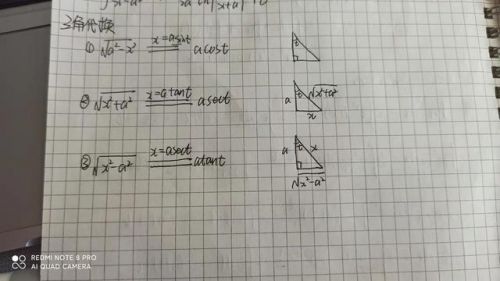 三角代换
① √a²-x² x=asint acost
② √x²+a² x=atant asect a t √x²+a² x
③ √x²-a² x=asect atant a t x √x²-a²
REDMI NOTE 8 PRO
AI QUAD CAMERA